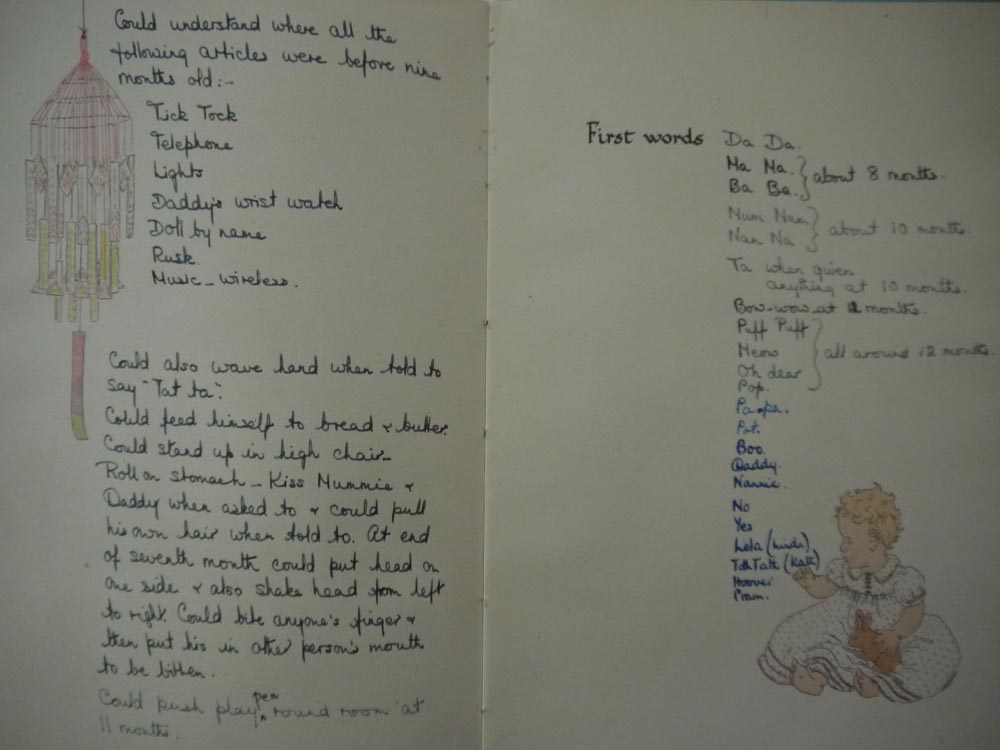 Could understand where all the
following articles were before nine
months old:-
Tick Tock
Telephone
Lights
Daddy's wrist watch
Doll by name
Rusk.
Music - wireless.
Could also wave hand when told to
say "Tat ta".
Could feed himself to bread & butter.
Could stand up in high chair -
Roll on stomach - Kiss Mummie &
Daddy when asked to & could pull
his own hair when told to. At end
of seventh month could put head on
one side & also shake head from left
to right. Could bite anyone's finger &
then put his in other person's mouth
to be bitten.
Could push play pen round room at
11 months.
First words Da Da.
Ma Ma. } about 8 months.
Ba Ba.
Num Num } about 10 months.
Nan Na
Ta when given
anything at 10 months.
Bow-wow at 12 months.
Puff Puff
Meow } all around 12 months.
Oh dear
Pop.
Pot.
Boo.
Daddy.
Nannie.
No
Yes
Lela (Linda)
Hoover
Pram.